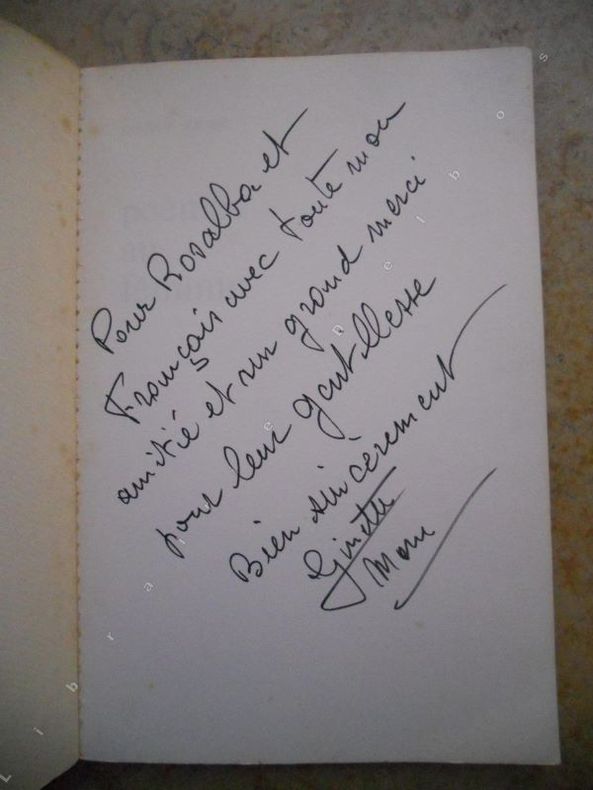 Pour Rosalba et
François avec toute mon
amitié et un grand merci
pour leur gentillesse
Bien sincèrement
Ginette